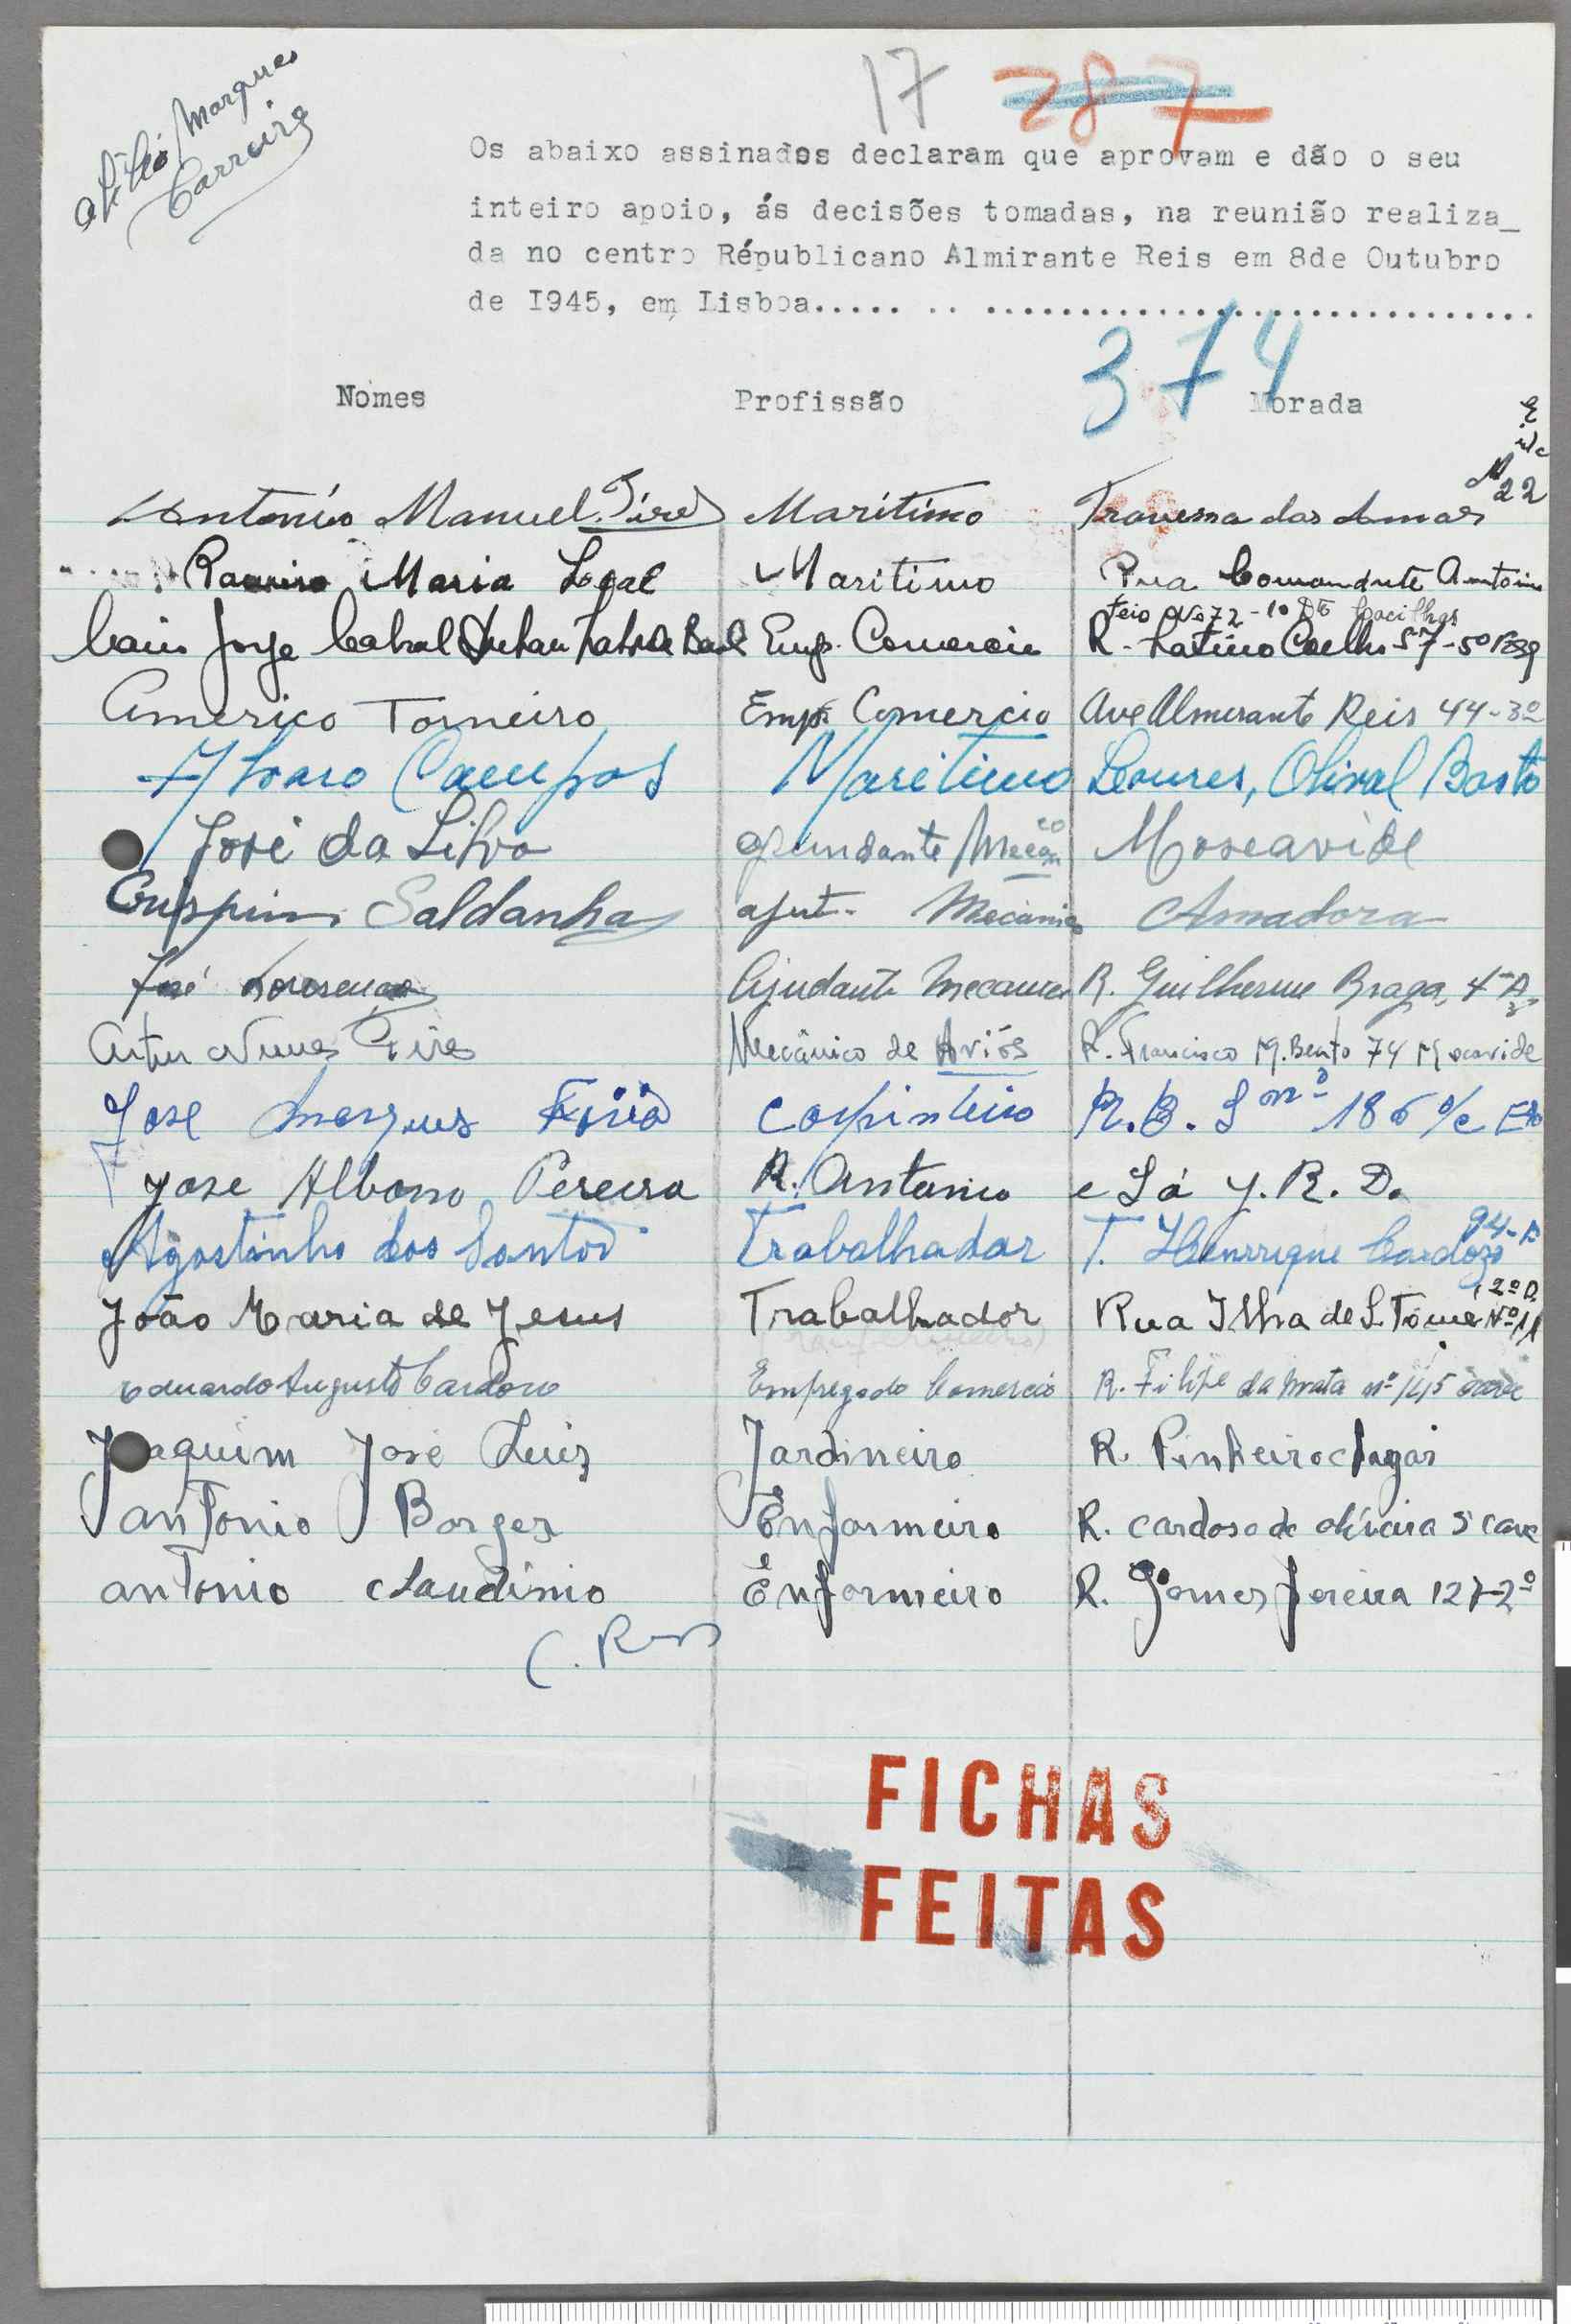 17 287
Marques
Carreira
Os abaixo assinados declaram que aprovam e dão o seu
inteiro apoio, ás decisões tomadas, na reunião realiza_
da no centro Républicano Almirante Reis em 8de Outubro
de I945, em Lisboa..... .. ..............................
374
Nomes Profissão Morada
22
António Manuel Pires Marítimo Travessa das
Ramiro Maria Maritimo Rua Comandante Antonio
Feio No 72-1o Dto Cacilhas
Jorge Cabral Emp. Comercio R. Latino Coelho 57-5º
Americo Torneiro Emp. Comercio Ave Almirante Reis 44-3º
Alvaro Campos Maritimo Loures, Olival Basto
José da Silva Mecan co Moscavide
Crispim Saldanha ajut. Mecanico Amadora
José Ajudante Mecanico R. Guilherme Braga, 4-A
Artur Nunes Pires Mecânico de Aviós R. Francisco M. Bento 74 Moscavide
Jose Marques Carpinteiro R. B. S 186
Jose Albano Pereira R. Antonio e Sá Y. R. D.
94-A
Agostinho dos Santos Trabalhador T. Henrrique Cardozo
2º D.
João Maria de Jesus Trabalhador Rua Ilha de S. Tome Nº 11
Eduardo Augusto Cardoso Empregado Comercio R. Filipe da Mata nº 145 cave
Joaquim José Luiz Jardineiro R. Pinheiro chagas
antonio Borges Enformeiro R. cardoso de oliveira 5 cave
antonio claudinio Enformeiro R. Gomes Pereira 127-2º
FICHAS
FEITAS